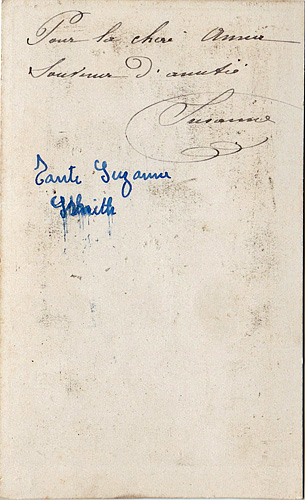 Pour la chère Anna
Souvenir d'amitié
Suzanne
Tante Suzanne